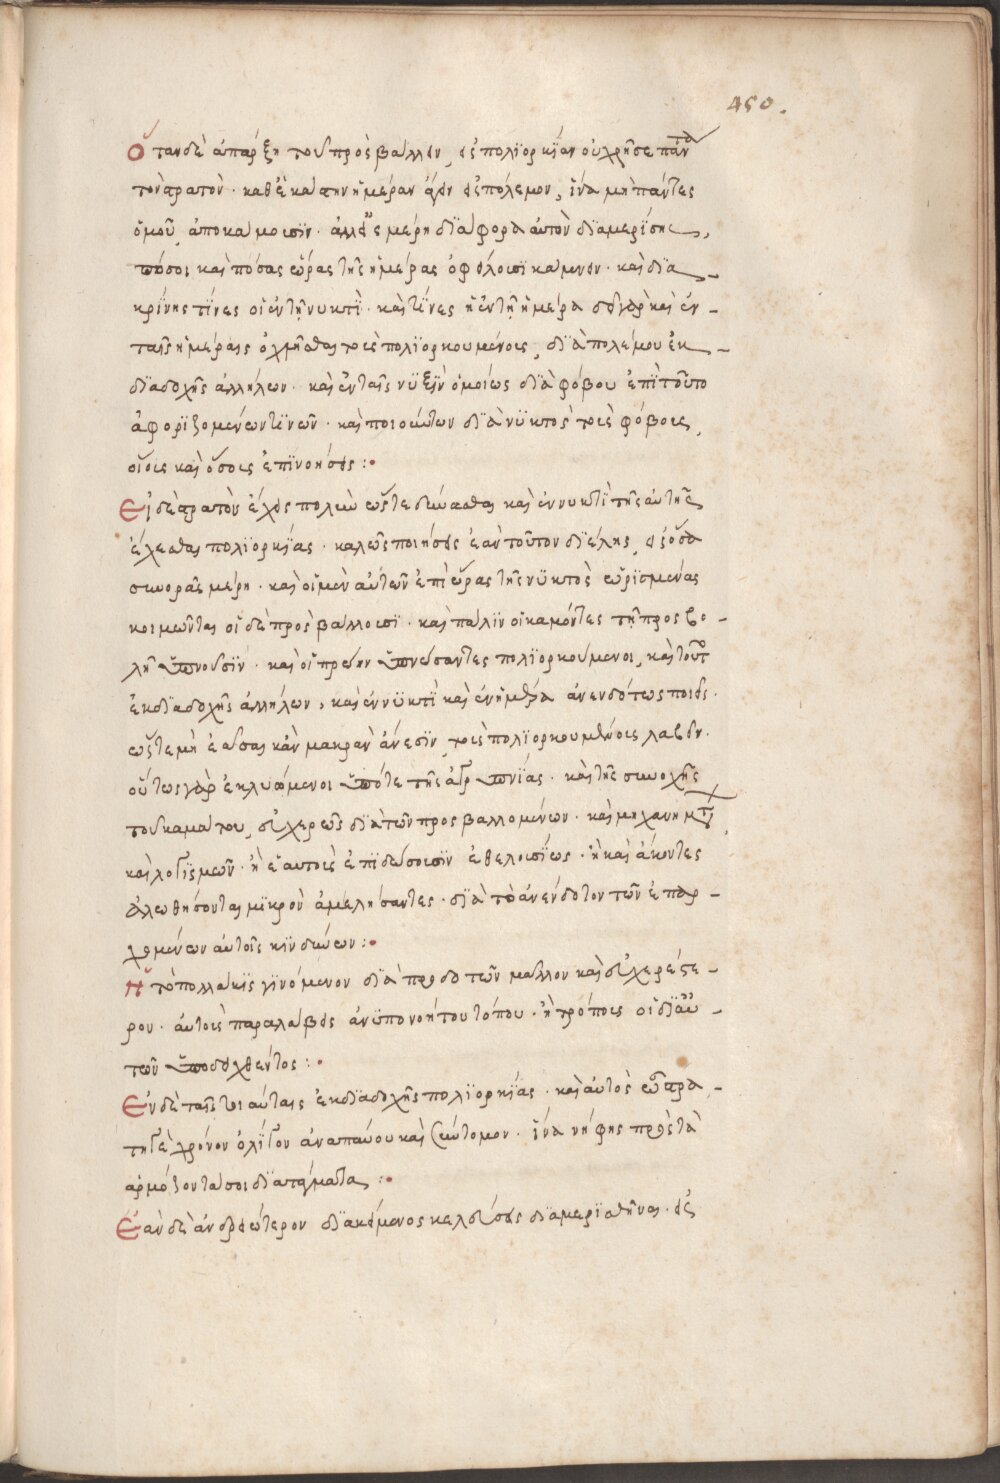 450.
Ὅταν δὲ ἀπάρξη τοῦ προσβάλλειν, εἰς πολϊορκΐαν οὐ χρή σε πάντα
τὸν στρατὸν · καθ' ἑκάστην ἡμέραν ἄγειν εἰς πόλεμον, ἵνα μὴ πάντες
ὁμοῦ ἀποκάμωσϊν · ἀλλ' εἰς μέρη διάφορα αὐτὸν διαμερίσης,
πόσοι καὶ πόσας ὥρας τῆς ἡμέρας ὀφείλουσϊ κάμνειν · καὶ δϊα
κρίνης τίνες οἱ ἐν τῆ νυκτὶ · καὶ τίνες ἢ ἐν τῆ ἡμέρα δεῖ γὰρ καὶ ἐν
ταῖς ἡμέραις ὀχλῆσθαι τοὺς πολϊορκουμένους, δϊὰ πολέμου ἐκ
δϊαδοχῆς ἀλλήλων · καὶ ἐν ταῖς νυξὶν ὁμοίως δϊὰ φόβου ἐπὶ τοῦτο
ἀφορϊζομένων τϊνῶν · καὶ ποιούντων δϊὰ νυκτὸς τοὺς φόβους,
οἵους καὶ ὅσους ἐπϊνοήσεις :·
Εἰ δὲ στρατὸν ἔχεις πολὺν ὥστε δύνασθαι καὶ ἐν νυκτὶ τῆς αὐτῆς
ἔχεσθαι πολϊορκίας · καλῶς ποιήσεις ἐὰν τοῦτον δϊέλης, εἰς ὅσα
συνορᾶς μέρη · καὶ οἱ μὲν αὐτῶν ἐπὶ ὥρας τῆς νυκτὸς ὡρϊσμένας
κοιμῶνται οἱ δὲ προσβάλλουσϊ · καὶ πάλϊν οἱ καμόντες τῆ προσβο
λῆ ὑπνοῦσϊν · καὶ οἱ πρώην ὑπνώσαντες πολϊορκούμενοι, καὶ τοῦτο
ἐκ δϊαδοχῆς ἀλλήλων, καὶ ἐν νυκτὶ καὶ ἐν ἡμέρα ἀνενδότως ποιεῖς ·
ὥστε μὴ ἐᾶσαι κἂν μικρὰν ἄνεσϊν, τοὺς πολϊορκουμένους λαβεῖν ·
οὕτως γὰρ ἐκλυόμενοι ὑπό τε τῆς ἀγρυπνίας · καὶ τῆς συνοχῆς
τοῦ καμάτου, εὐχερῶς δϊὰ τῶν προσβαλλομένων · καὶ μηχανημάτων
καὶ λογϊσμῶν · ἢ ἑαυτοὺς ἐπϊδώσουσϊν ἐθελουσίως · ἢ καὶ ἄκοντες
ἁλωθήσονται μϊκρὸν ἀμελήσαντες · δϊὰ τὸ ἀνένδοτον τῶν ἐπερ
χομένων αὐτοῖς κινδύνων :·
Ἢ τὸ πολλάκις γϊνόμενον δϊὰ προδοτῶν μᾶλλον καὶ εὐχερέστε
ρον · αὐτοὺς παραλάβεις ἀνυπονοήτου τόπου · ἢ τρόπους οἱ δϊ' αὐ
τῶν ὑποδειχθέντος :·
Ἐν δὲ ταῖς τοιαύταις ἐκ δϊαδοχῆς πολϊορκίας · καὶ αὐτὸς ὦ στρα
τηγὲ χρόνον ὀλίγον ἀναπαύου καὶ σύντομον · ἵνα νήφης πρὸς τὰ
ἁρμόζοντά σοι δϊατάγματα :·
Ἐὰν δὲ ἀνδρειότερον δϊακείμενος κελεύσεις δϊαμερϊσθῆναι · εἰς